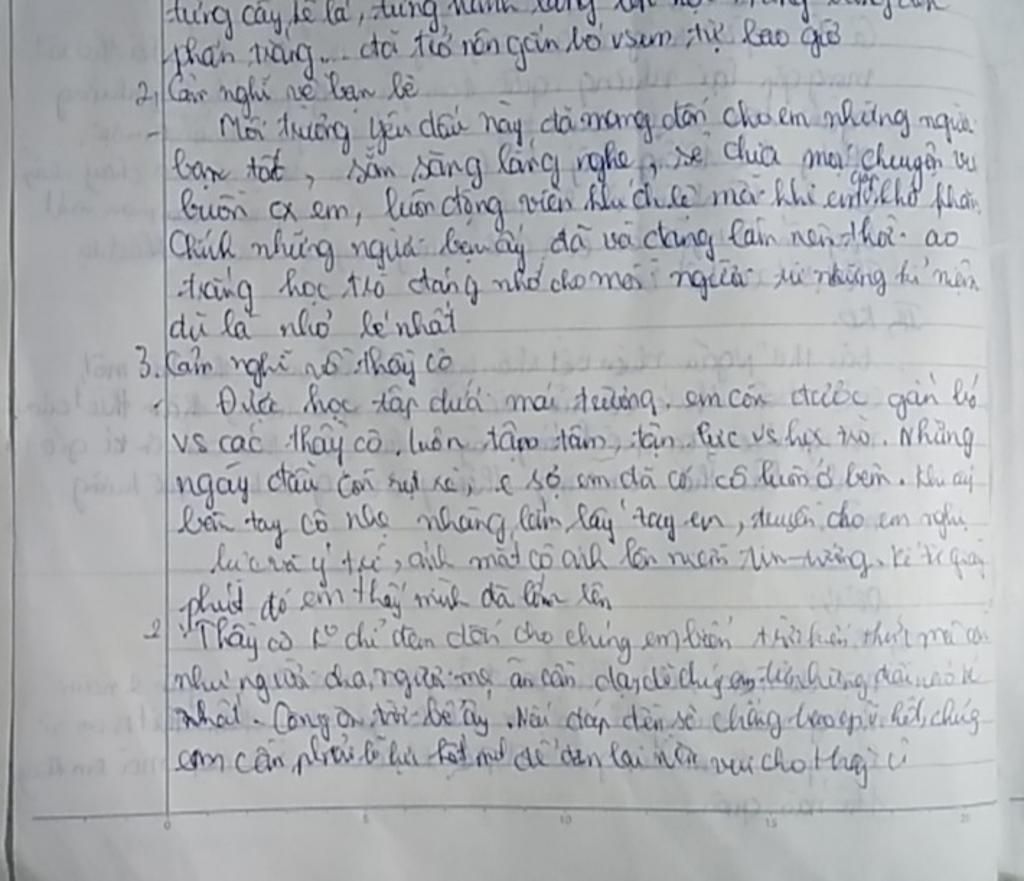 từng cây kẽ lá, từng hành lang
phấn trắng... đã trở nên gắn bó vs em tự bao giờ
2, Cảm nghĩ về bạn bè
- Mái trường yêu dấu này đã mang đến cho em những người
bạn tốt, sẵn sàng lắng nghe, sẻ chia mọi chuyện vui
buồn của em, luôn động viên khích lệ mỗi khi em gặp khó khăn.
Chính những người bạn ấy đã và đang làm nên thời áo
trắng học trò đáng nhớ cho mọi người từ những kỉ niệm
dù là nhỏ bé nhất
3. Cảm nghĩ về thầy cô
- Được học tập dưới mái trường, em còn được gắn bó
vs các thầy cô, luôn tận tâm, tận lực vs học trò. Những
ngày đầu còn rụt rè, e sợ em đã có cô luôn ở bên. Khi ấy
bàn tay cô nhẹ nhàng cầm lấy tay em, truyền cho em nghị
lực và ý trí, ánh mắt cô ánh lên niềm tin tưởng. Kể từ giây
phút đó em thấy mình đã lớn lên
2 Thầy cô ko chỉ đem đến cho chúng em kiến thức mà còn
như người cha, người mẹ ân cần dạy dỗ chúng em
nhất. Công ơn trời bể ấy chẳng bao giờ hết, chúng
em cần phải hết để đem lại niềm vui cho thầy cô
0 5 10 15 20